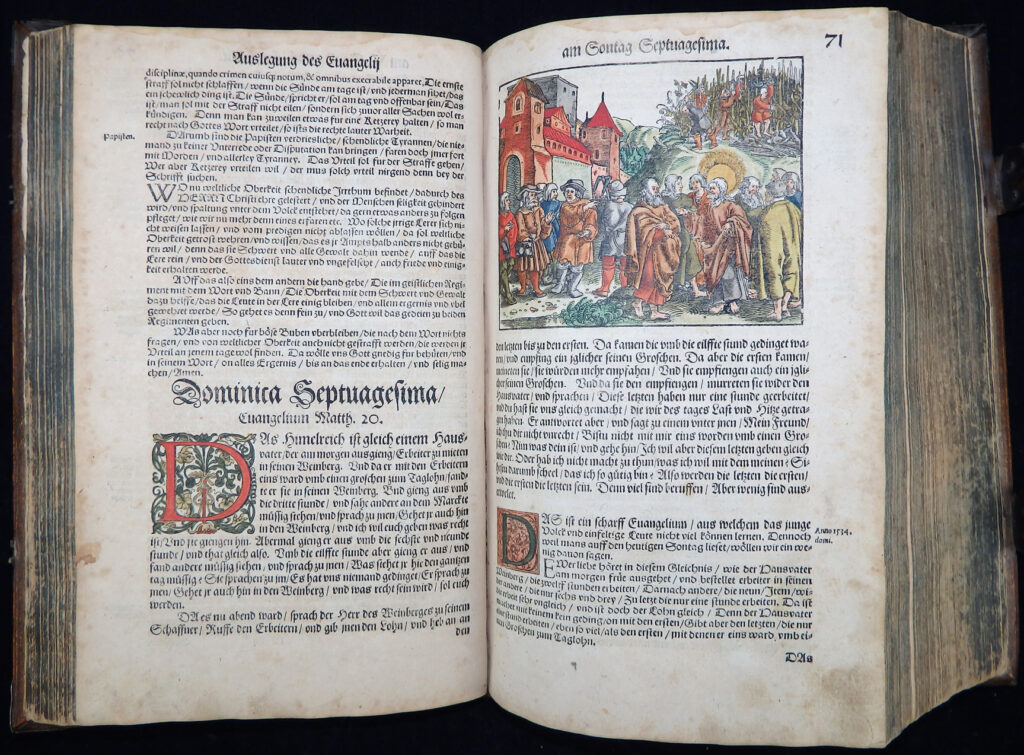 Auslegung des Euangelij
disciplinæ, quando crimen cuiusq; notum, & omnibus execrabile apparet. Die ernste
straff sol nicht schlaffen / wenn die Sünde am tage ist / vnd jederman sihet / das
ein schewlich ding ist. Die Sünde / spricht er / sol am tag vnd offenbar sein / Das
ist / man sol mit der Straff nicht eilen / sondern sich zuuor aller Sachen wol er-
kündigen. Denn man kan zuweilen etwas für eine Ketzerey halten / so man
recht nach Gottes Wort vrteilet / so ists die rechte lauter Warheit.
Papisten.
DArumb sind die Papisten verdriesliche / schendliche Tyrannen / die nie-
mand zu keiner Vnterrede oder Disputation kan bringen / faren doch jmer fort
mit Morden / vnd allerley Tyranney. Das Vrteil sol für der Straffe gehen /
Wer aber Ketzerey vrteilen wil / der mus solch vrteil nirgend denn bey der
Schrifft suchen.
WO nu weltliche Oberkeit schendliche Irrthum befindet / dadurch des
HERRN Christi ehre gelestert / vnd der Menschen seligkeit gehindert
wird / vnd spaltung vnter dem Volck entstehet / da gern etwas anders zu folgen
pfleget / wie wir nu mehr denn eines erfaren etc. Wo solche jrrige Lerer sich ni-
cht weisen lassen / vnd vom predigen nicht ablassen wöllen / da sol weltliche
Oberkeit getrost wehren / vnd wissen / das es jr Ampts halb anders nicht gebü-
ren wil / denn das sie Schwert vnd alle Gewalt dahin wende / auff das die
Lere rein / vnd der Gottesdienst lauter vnd vngefelscht / auch friede vnd einig-
keit erhalten werde.
AUff das also eins dem andern die hand gebe / Die im geistlichen Regi-
ment mit dem Wort vnd Bann / Die Oberkeit mit dem Schwert vnd Gewalt
dazu helffe / das die Leute in der Lere einig bleiben / vnd allem ergernis vnd vbel
gewehret werde / So gehet es denn fein zu / vnd Gott wil das gedeien zu beiden
Regimenten geben.
WAs aber noch für böse Buben vberbleiben / die nach dem Wort nichts
fragen / vnd von weltlicher Oberkeit auch nicht gestrafft werden / die werden jr
Vrteil an jenem tage wol finden. Da wölle vns Gott gnedig für behüten / vnd
in seinem Wort / on alles Ergernis / bis an das ende erhalten / vnd selig ma-
chen / Amen.
Dominica Septuagesima /
Euangelium Matth. 20.
DAs Himelreich ist gleich einem Haus-
vater / der am morgen ausgieng / Erbeiter zu mieten
in seinen Weinberg. Vnd da er mit den Erbeitern
eins ward vmb einen groschen zum Taglohn / sand-
te er sie in seinen Weinberg. Vnd gieng aus vmb
die dritte stunde / vnd sahe andere an dem Marckte
müssig stehen / vnd sprach zu jnen / Gehet jr auch hin
in den Weinberg / vnd ich wil euch geben was recht
ist / Vnd sie giengen hin. Abermal gieng er aus vmb die sechste vnd neunde
stunde / vnd thet gleich also. Vmb die eilffte stunde aber gieng er aus / vnd
fand andere müssig stehen / vnd sprach zu jnen / Was stehet jr hie den gantzen
tag müssig? Sie sprachen zu jm / Es hat vns niemand gedinget / Er sprach zu
jnen / Gehet jr auch hin in den Weinberg / vnd was recht sein wird / sol euch
werden.
DA es nu abend ward / sprach der Herr des Weinberges zu seinem
Schaffner / Ruffe den Erbeitern / vnd gib jnen den Lohn / vnd heb an an
den
am Sontag Septuagesima.
71
den letzten bis zu den ersten. Da kamen die vmb die eilffte stund gedinget wa-
ren / vnd empfing ein jglicher seinen Groschen. Da aber die ersten kamen /
meineten sie / sie würden mehr empfahen / Vnd sie empfiengen auch ein jgli-
cher seinen Groschen. Vnd da sie den empfiengen / murreten sie wider den
Hausvater / vnd sprachen / Diese letzten haben nur eine stunde geerbeitet /
vnd du hast sie vns gleich gemacht / die wir des tages Last vnd Hitze getra-
gen haben. Er antwortet aber / vnd sagt zu einem vnter jnen / Mein Freund /
ich thu dir nicht vnrecht / Bistu nicht mit mir eins worden vmb einen Gro-
schen? Nim was dein ist / vnd gehe hin / Ich wil aber diesem letzten geben gleich
wie dir. Oder hab ich nicht macht zu thun / was ich wil mit dem meinen? Si-
hestu darumb scheel / das ich so gütig bin? Also werden die letzten die ersten /
vnd die ersten die letzten sein. Denn viel sind beruffen / Aber wenig sind aus-
erwelet.
DAS ist ein scharff Euangelium / aus welchem das junge
Volck vnd einfeltige Leute nicht viel können lernen. Dennoch
weil mans auff den heutigen Sontag lieset / wöllen wir ein we-
nig dauon sagen.
Anno 1534.
domi.
EWer liebe höret in diesem Gleichnis / wie der Hausvater
am morgen früe ausgehet / vnd bestellet erbeiter in seinen
Weinberg / die zwelff stunden erbeiten / Darnach andere / die neun / Item / wi-
der andere / die nur sechs vnd drey / Zu letzt die nur eine stunde erbeiten. Da ist
die erbeit sehr vngleich / vnd ist doch der Lohn gleich / Denn der Hausvater
machet mit keinem kein geding / on mit den ersten / Gibt aber den letzten / die nur
eine stund erbeiten / eben so viel / als den ersten / mit denen er eins ward / vmb ei-
nen Groschen zum Taglohn.
DAs